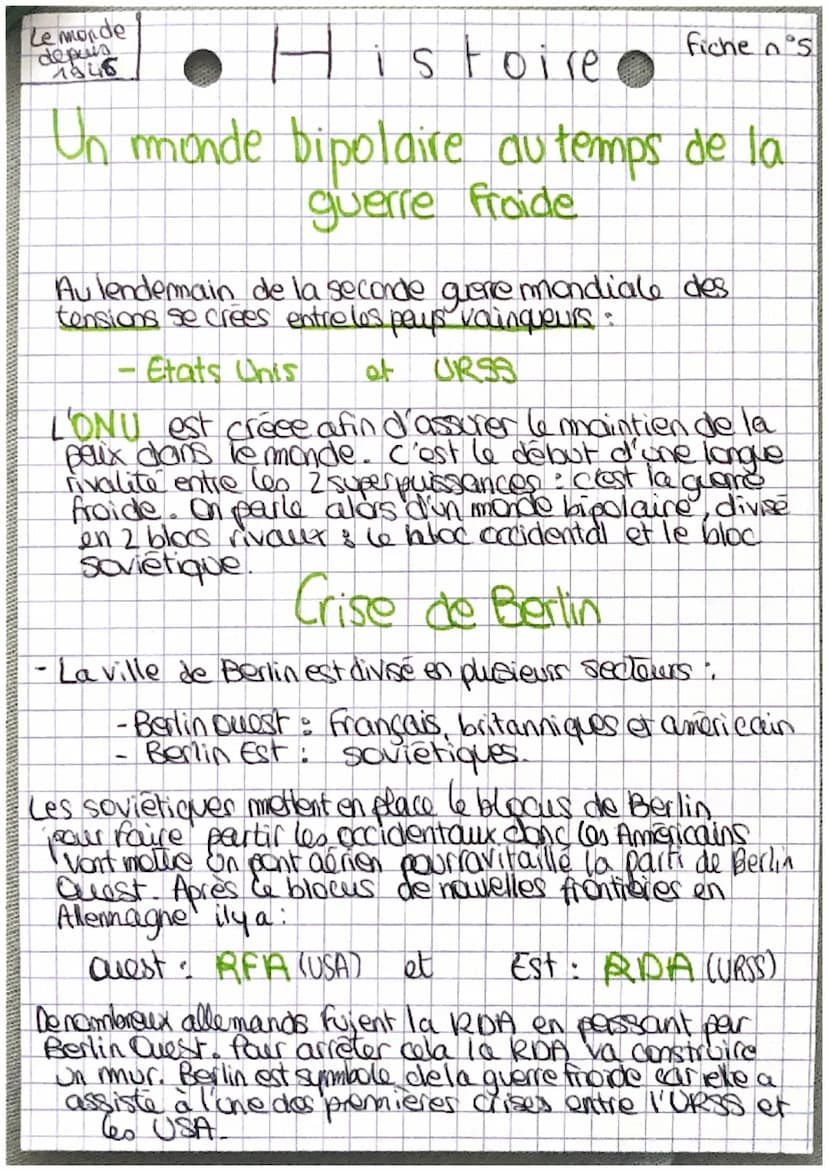 Le monde
depuis
1945
Histoire
fiche n°5
Un monde bipolaire au temps de la
guerre froide
Au lendemain de la seconde guere mondiale des
tensions se crées entre les pays vainqueurs :
- Etats Unis et URSS
L'ONU est créee afin d'assurer le maintien de la
paix dans le monde. C'est le début d'une longue
rivalité entre les 2 superpuissances : c'est la guerre
froide. On parle alors d'un monde bipolaire, divisé
en 2 blocs rivaux : le bloc occidental et le bloc
soviétique.
Crise de Berlin
- La ville de Berlin est divisé en plusieurs secteurs :
- Berlin Ouest : Français, britanniques et américain
- Berlin Est : soviétiques.
Les soviétiques mettent en place le blocus de Berlin
pour faire partir les occidentaux donc les Américains
vont mettre un pont aérien pour ravitaillé la parti de Berlin
Ouest. Après le blocus de nouvelles frontières en
Allemagne il y a :
Ouest : RFA (USA) et Est : RDA (URSS)
De nombreux allemands fujent la RDA en passant par
Berlin Ouest. Pour arrêter cela la RDA va construire
un mur. Berlin est symbole de la guerre froide car elle a
assisté à l'une des premières crises entre l'URSS et
les USA.